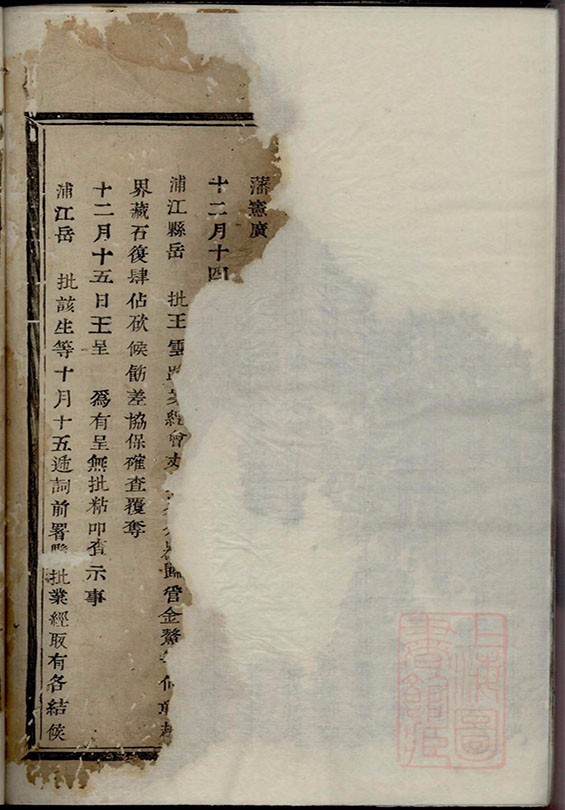 藩憲廣
十二月十四
浦江縣岳 批王雲 經會 管金鰲
界藏石復肆佔砍候飭差協保確查覆奪
十二月十五日王呈 爲有呈無批粘叩查示事
浦江岳 批該生等十月十五遞詞前署 批業經取有各結候
上海圖書館藏